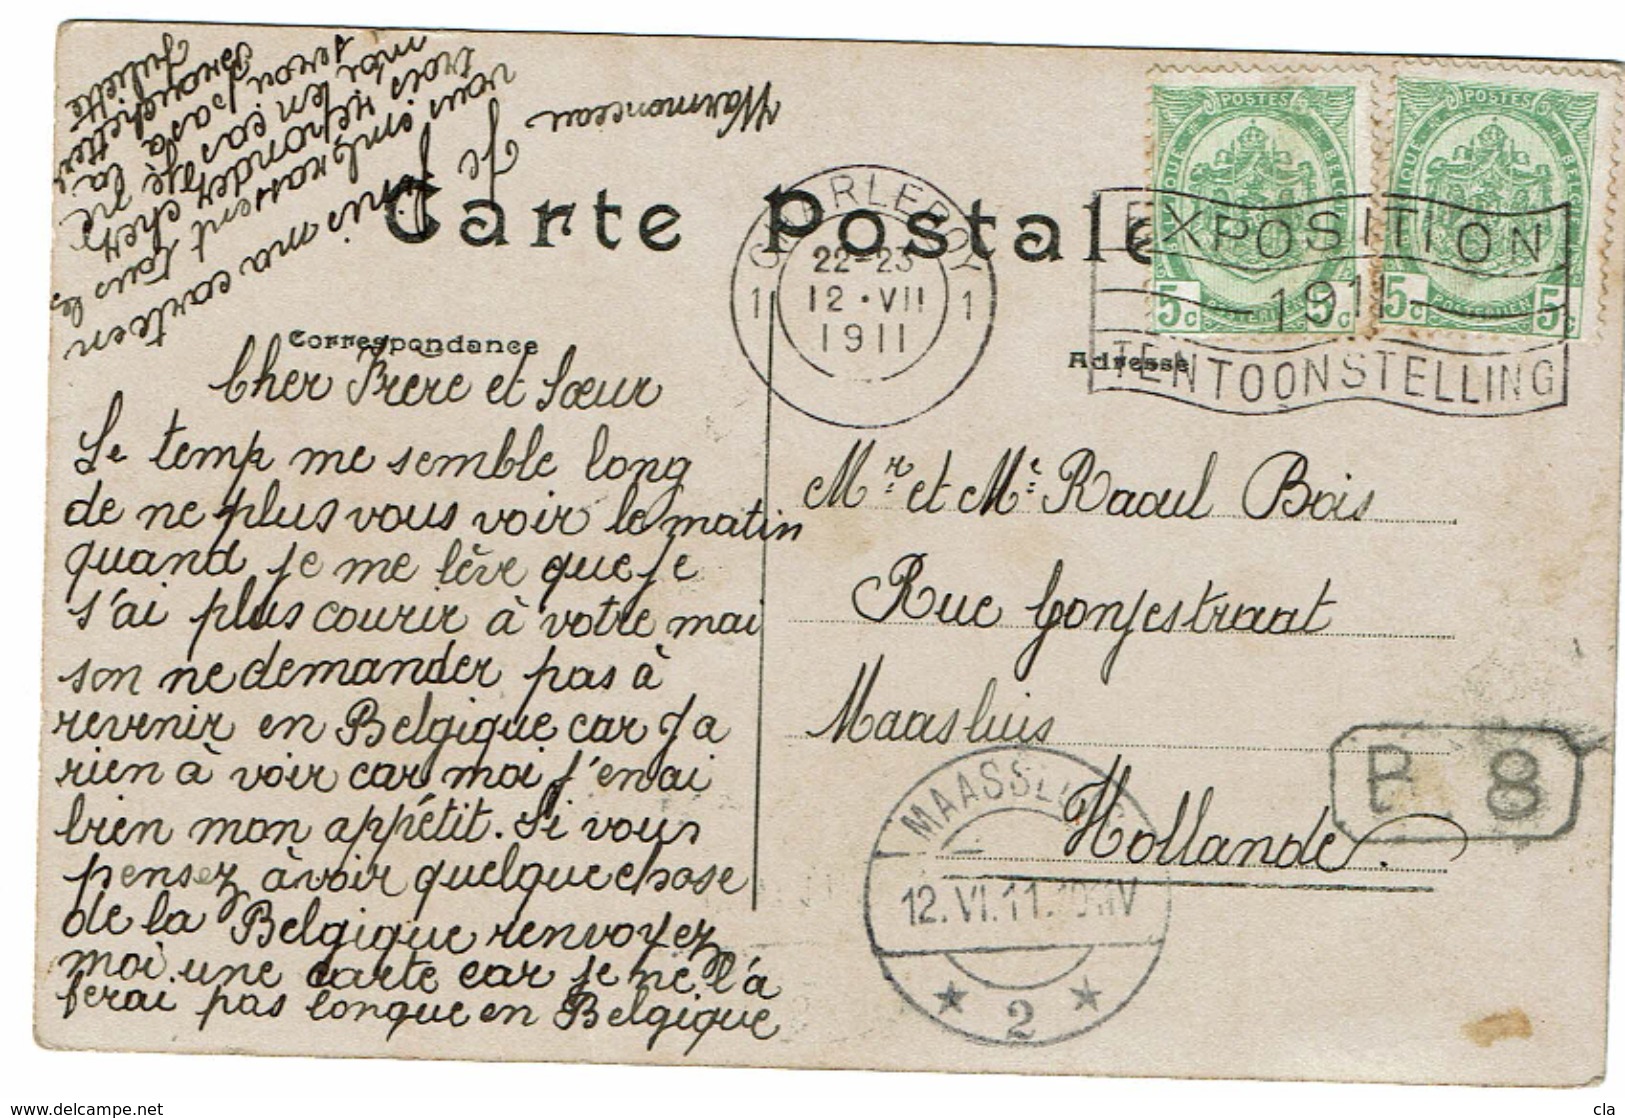 Carte Postale
Correspondance
Adresse
CHARLEROY
1 1
22-23
12·VII
1911
EXPOSITION
1911
TENTOONSTELLING
POSTES
BELGIQUE BELGIE
5c 5c
POSTERIJEN
POSTES
BELGIQUE BELGIE
5c 5c
POSTERIJEN
Cher Frère et Sœur
Le temp me semble long
de ne plus vous voir le matin
quand je me lève que je
s'ai plus courir à votre mai
son ne demander pas à
revenir en Belgique car j'a
rien à voir car moi j'en ai
bien mon appétit. Si vous
pensez àvoir quelque chose
de la Belgique renvoyez
moi une carte car je ne l'a
ferai pas longue en Belgique
Je finis ma carte en
vous embrassent tous les
trois repondez chez
moi en cas je ne
serai pas a la
Braquette
Juliette
Marmonceau
Mr et Me Raoul Bois
Rue Gonjestraat
Maasluis
Hollande.
MAASSLUIS
12.VI.11.
2
B 8
www.delcampe.net
cla